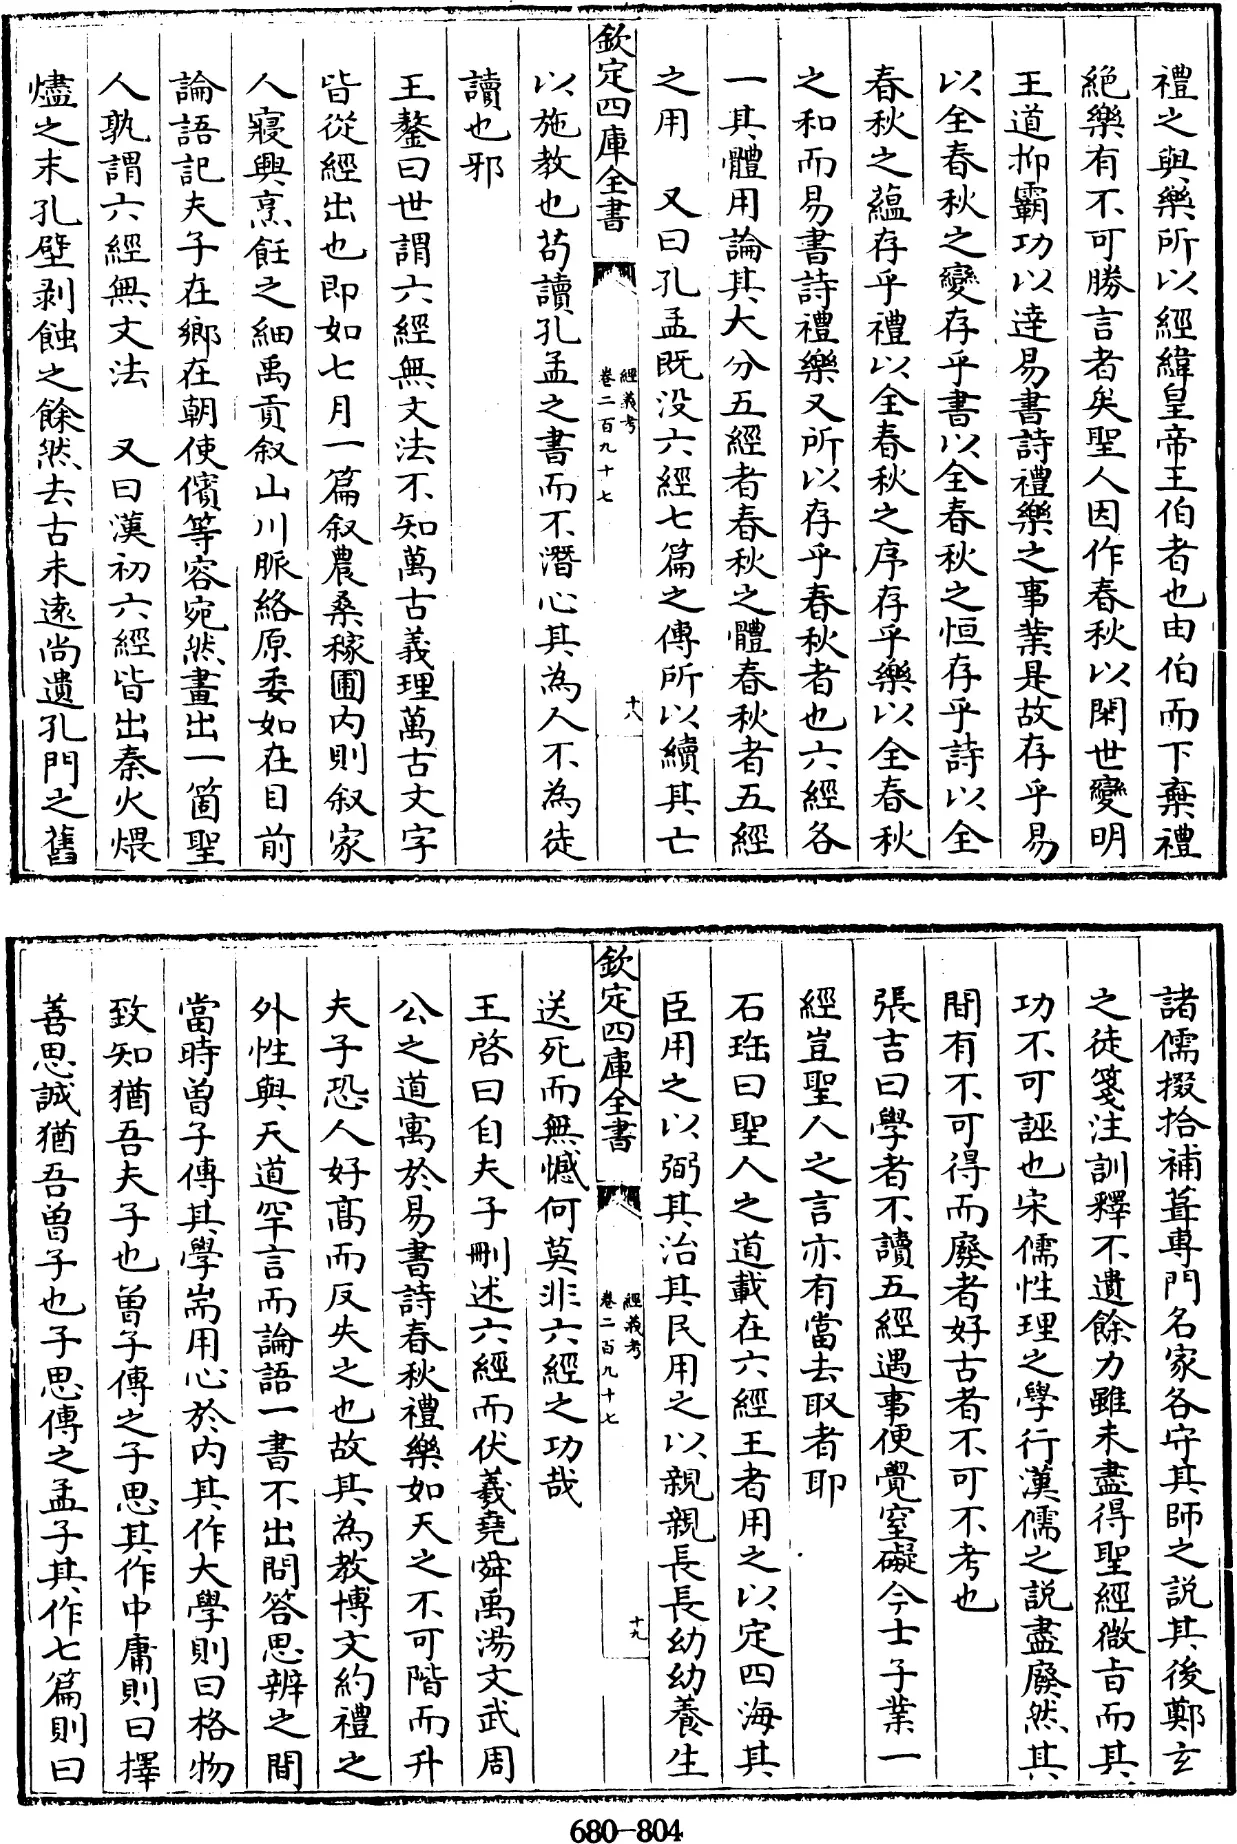 禮之與樂所以經緯皇帝王伯者也由伯而下棄禮
絕樂有不可勝言者矣聖人因作春秋以閑世變明
王道抑霸功以達易書詩禮樂之事業是故存乎易
以全春秋之變存乎書以全春秋之恒存乎詩以全
春秋之蘊存乎禮以全春秋之序存乎樂以全春秋
之和而易書詩禮樂又所以存乎春秋者也六經各
一其體用論其大分五經者春秋之體春秋者五經
之用　又曰孔孟既没六經七篇之傳所以續其亡
欽定四庫全書
經義考
卷二百九十七
十八
以施教也茍讀孔孟之書而不潛心其為人不為徒
讀也邪
王鏊曰世謂六經無文法不知萬古義理萬古文字
皆從經出也即如七月一篇叙農桑稼圃内則叙家
人寢興烹飪之細禹貢叙山川脈絡原委如在目前
論語記夫子在鄉在朝使儐等容宛然畫出一箇聖
人孰謂六經無文法　又曰漢初六經皆出秦火煨
燼之末孔壁剥蝕之餘然去古未遠尚遺孔門之舊
諸儒掇拾補葺專門名家各守其師之説其後鄭玄
之徒箋注訓釋不遺餘力雖未盡得聖經微旨而其
功不可誣也宋儒性理之學行漢儒之説盡廢然其
間有不可得而廢者好古者不可不考也
張吉曰學者不讀五經遇事便覺窒礙今士子業一
經豈聖人之言亦有當去取者耶
石珤曰聖人之道載在六經王者用之以定四海其
臣用之以弼其治其民用之以親親長長幼幼養生
欽定四庫全書
經義考
卷二百九十七
十九
送死而無憾何莫非六經之功哉
王啓曰自夫子刪述六經而伏羲堯舜禹湯文武周
公之道寓於易書詩春秋禮樂如天之不可階而升
夫子恐人好髙而反失之也故其為教博文約禮之
外性與天道罕言而論語一書不出問答思辨之間
當時曽子傳其學耑用心於内其作大學則曰格物
致知猶吾夫子也曽子傳之子思其作中庸則曰擇
善思誠猶吾曽子也子思傳之孟子其作七篇則曰
680-804